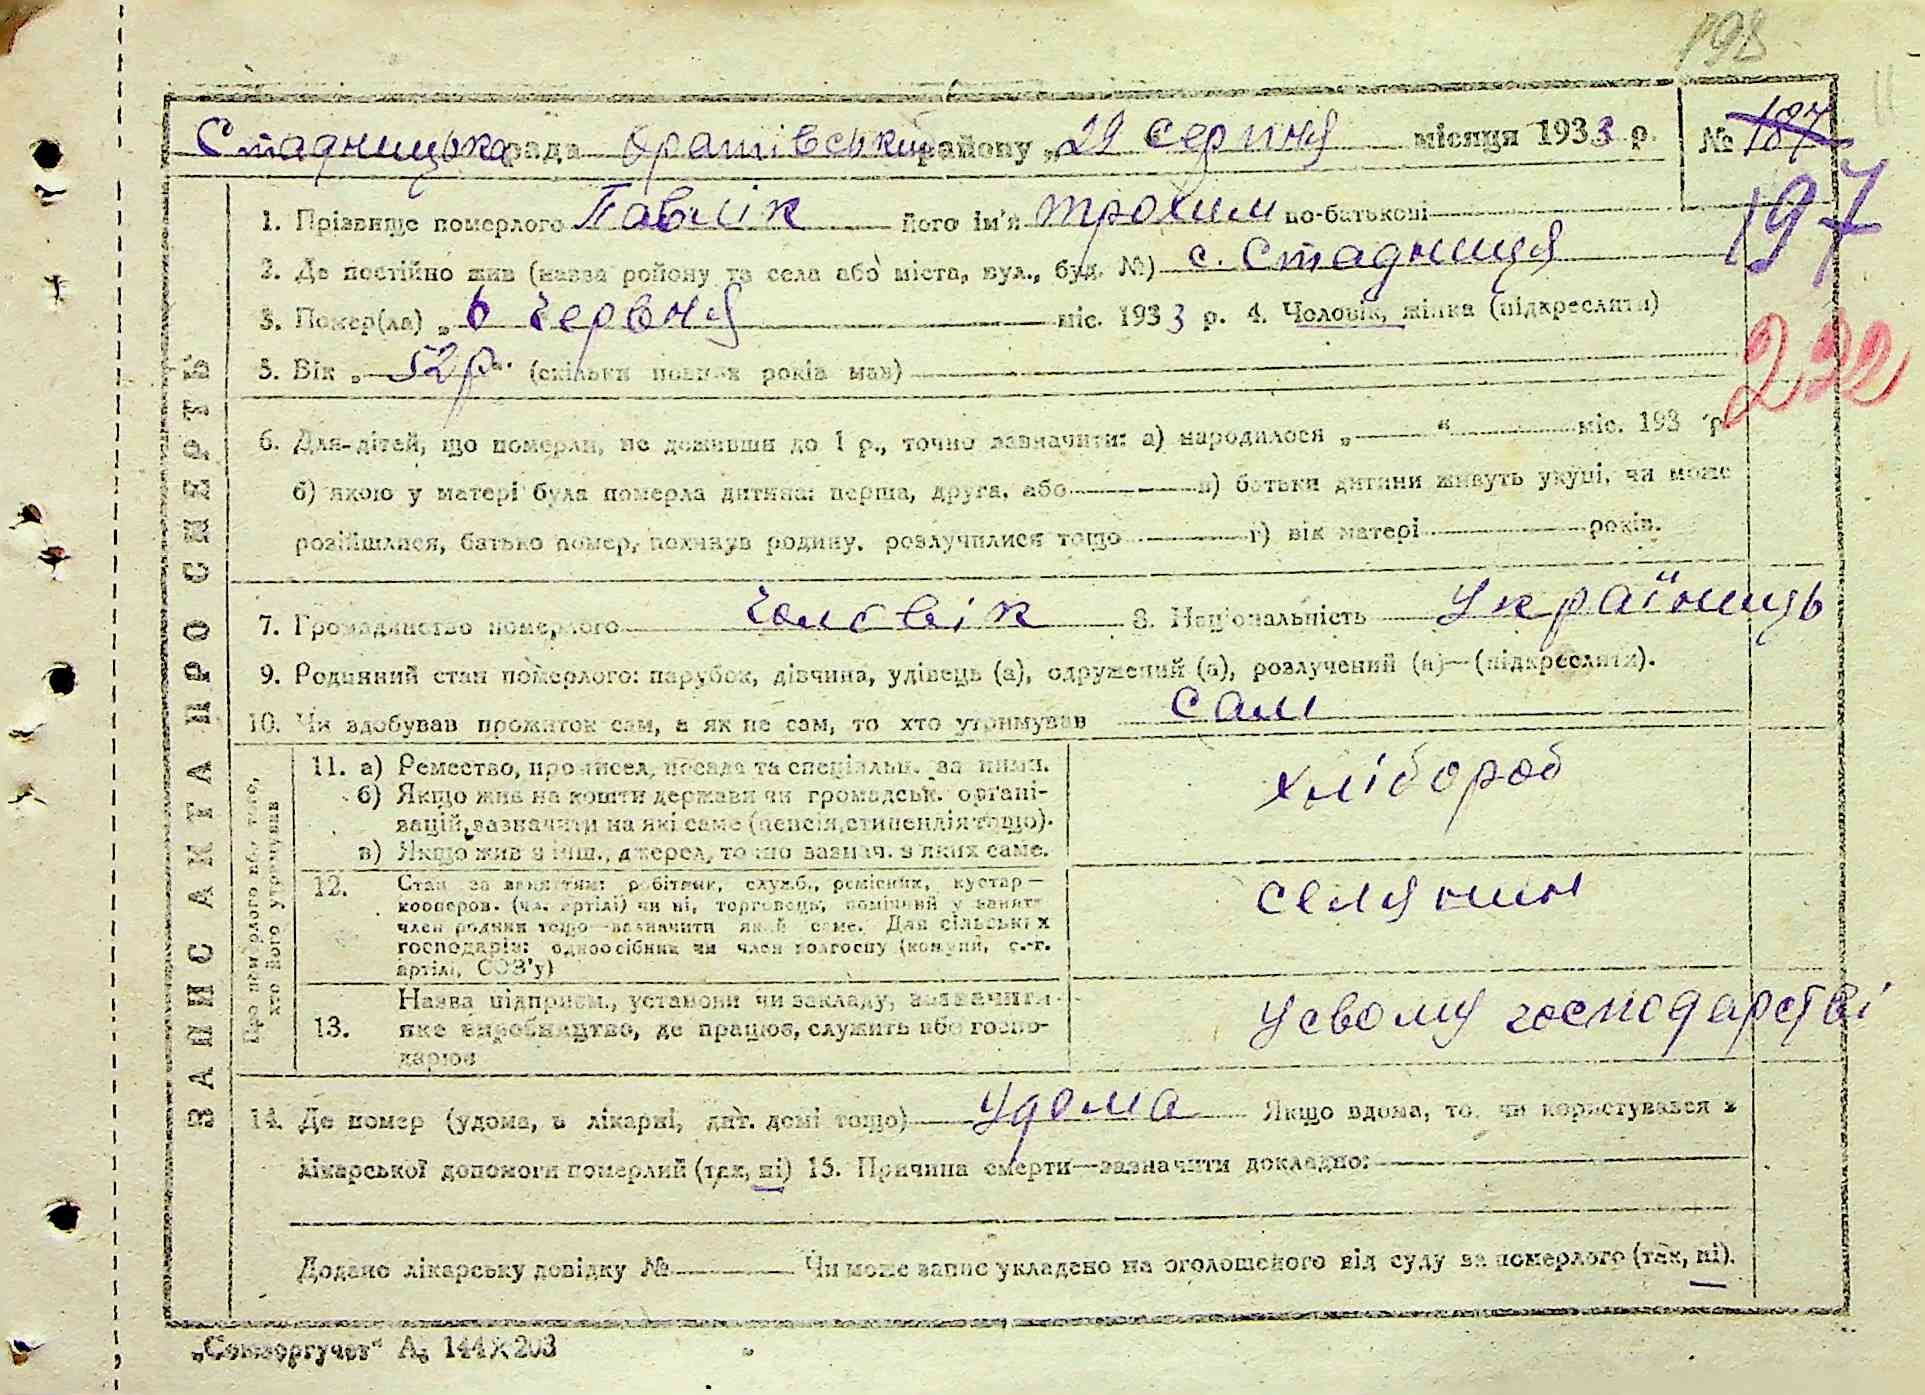 198
Стадницька рада Оратівський району „29 серпня місяця 1933 р. № 187
197
1. Прізвище померлого Павлік його ім'я Трохим по-батькові
2. Де постійно жив (назва ройону та села або міста, вул., буд. №) с. Стадниця
3. Помер(ла) „6 червня міс. 1933 р. 4. Чоловік, жінка (підкреслити)
232
5. Вік „52р“ (скільки повних років мав)
6. Для дітей, що померли, не доживши до 1 р., точно зазначити: а) народилося „ “ міс. 193 р.
б) якою у матері була померла дитина: перша, друга, або в) батьки дитини живуть укупі, чи може
розійшлися, батько помер, покинув родину, розлучилися тощо г) вік матері років.
7. Громадянство померлого чоловік 8. Національність Україниць
9. Родинний стан померлого: парубок, дівчина, удівець (а), одружений (а), розлучений (а)—(підкреслити).
10. Чи здобував прожиток сам, а як не сам, то хто утримував сам
ЗАПИС АКТА ПРО СМЕРТЬ
Про померлого або того, хто його утримував
11. а) Ремество, промисел, посада та спеціальн. за ними.
б) Якщо жив на кошти держави чи громадськ. органі-
зацій, зазначити на які саме (пенсія, стипендія тощо).
в) Якщо жив з інш., джерел, точно зазнач. з яких саме.
хлібороб
12. Стан за заняттям: робітник, служб., ремісник, кустар—
кооперов. (чл. артілі) чи ні, торговець, помічний у занят.
член родини тощо—зазначити який саме. Для сільських
господарів: одноосібник чи член колгоспу (комуни, с.-г.
артілі, СОЗ'у)
селянин
13. Назва підприєм., установи чи закладу, зазначити
яке виробництво, де працює, служить або госпо-
дарює
Усвому господарстві
14. Де помер (удома, в лікарні, дит. домі тощо) Удома Якщо вдома, то чи користувався з
лікарської допомоги померлий (так, ні) 15. Причина смерти—зазначити докладно:
Додано лікарську довідку № Чи може запис укладено на оголошеного від суду за померлого (так, ні).
„Союзоргучет“ А₆ 144×203